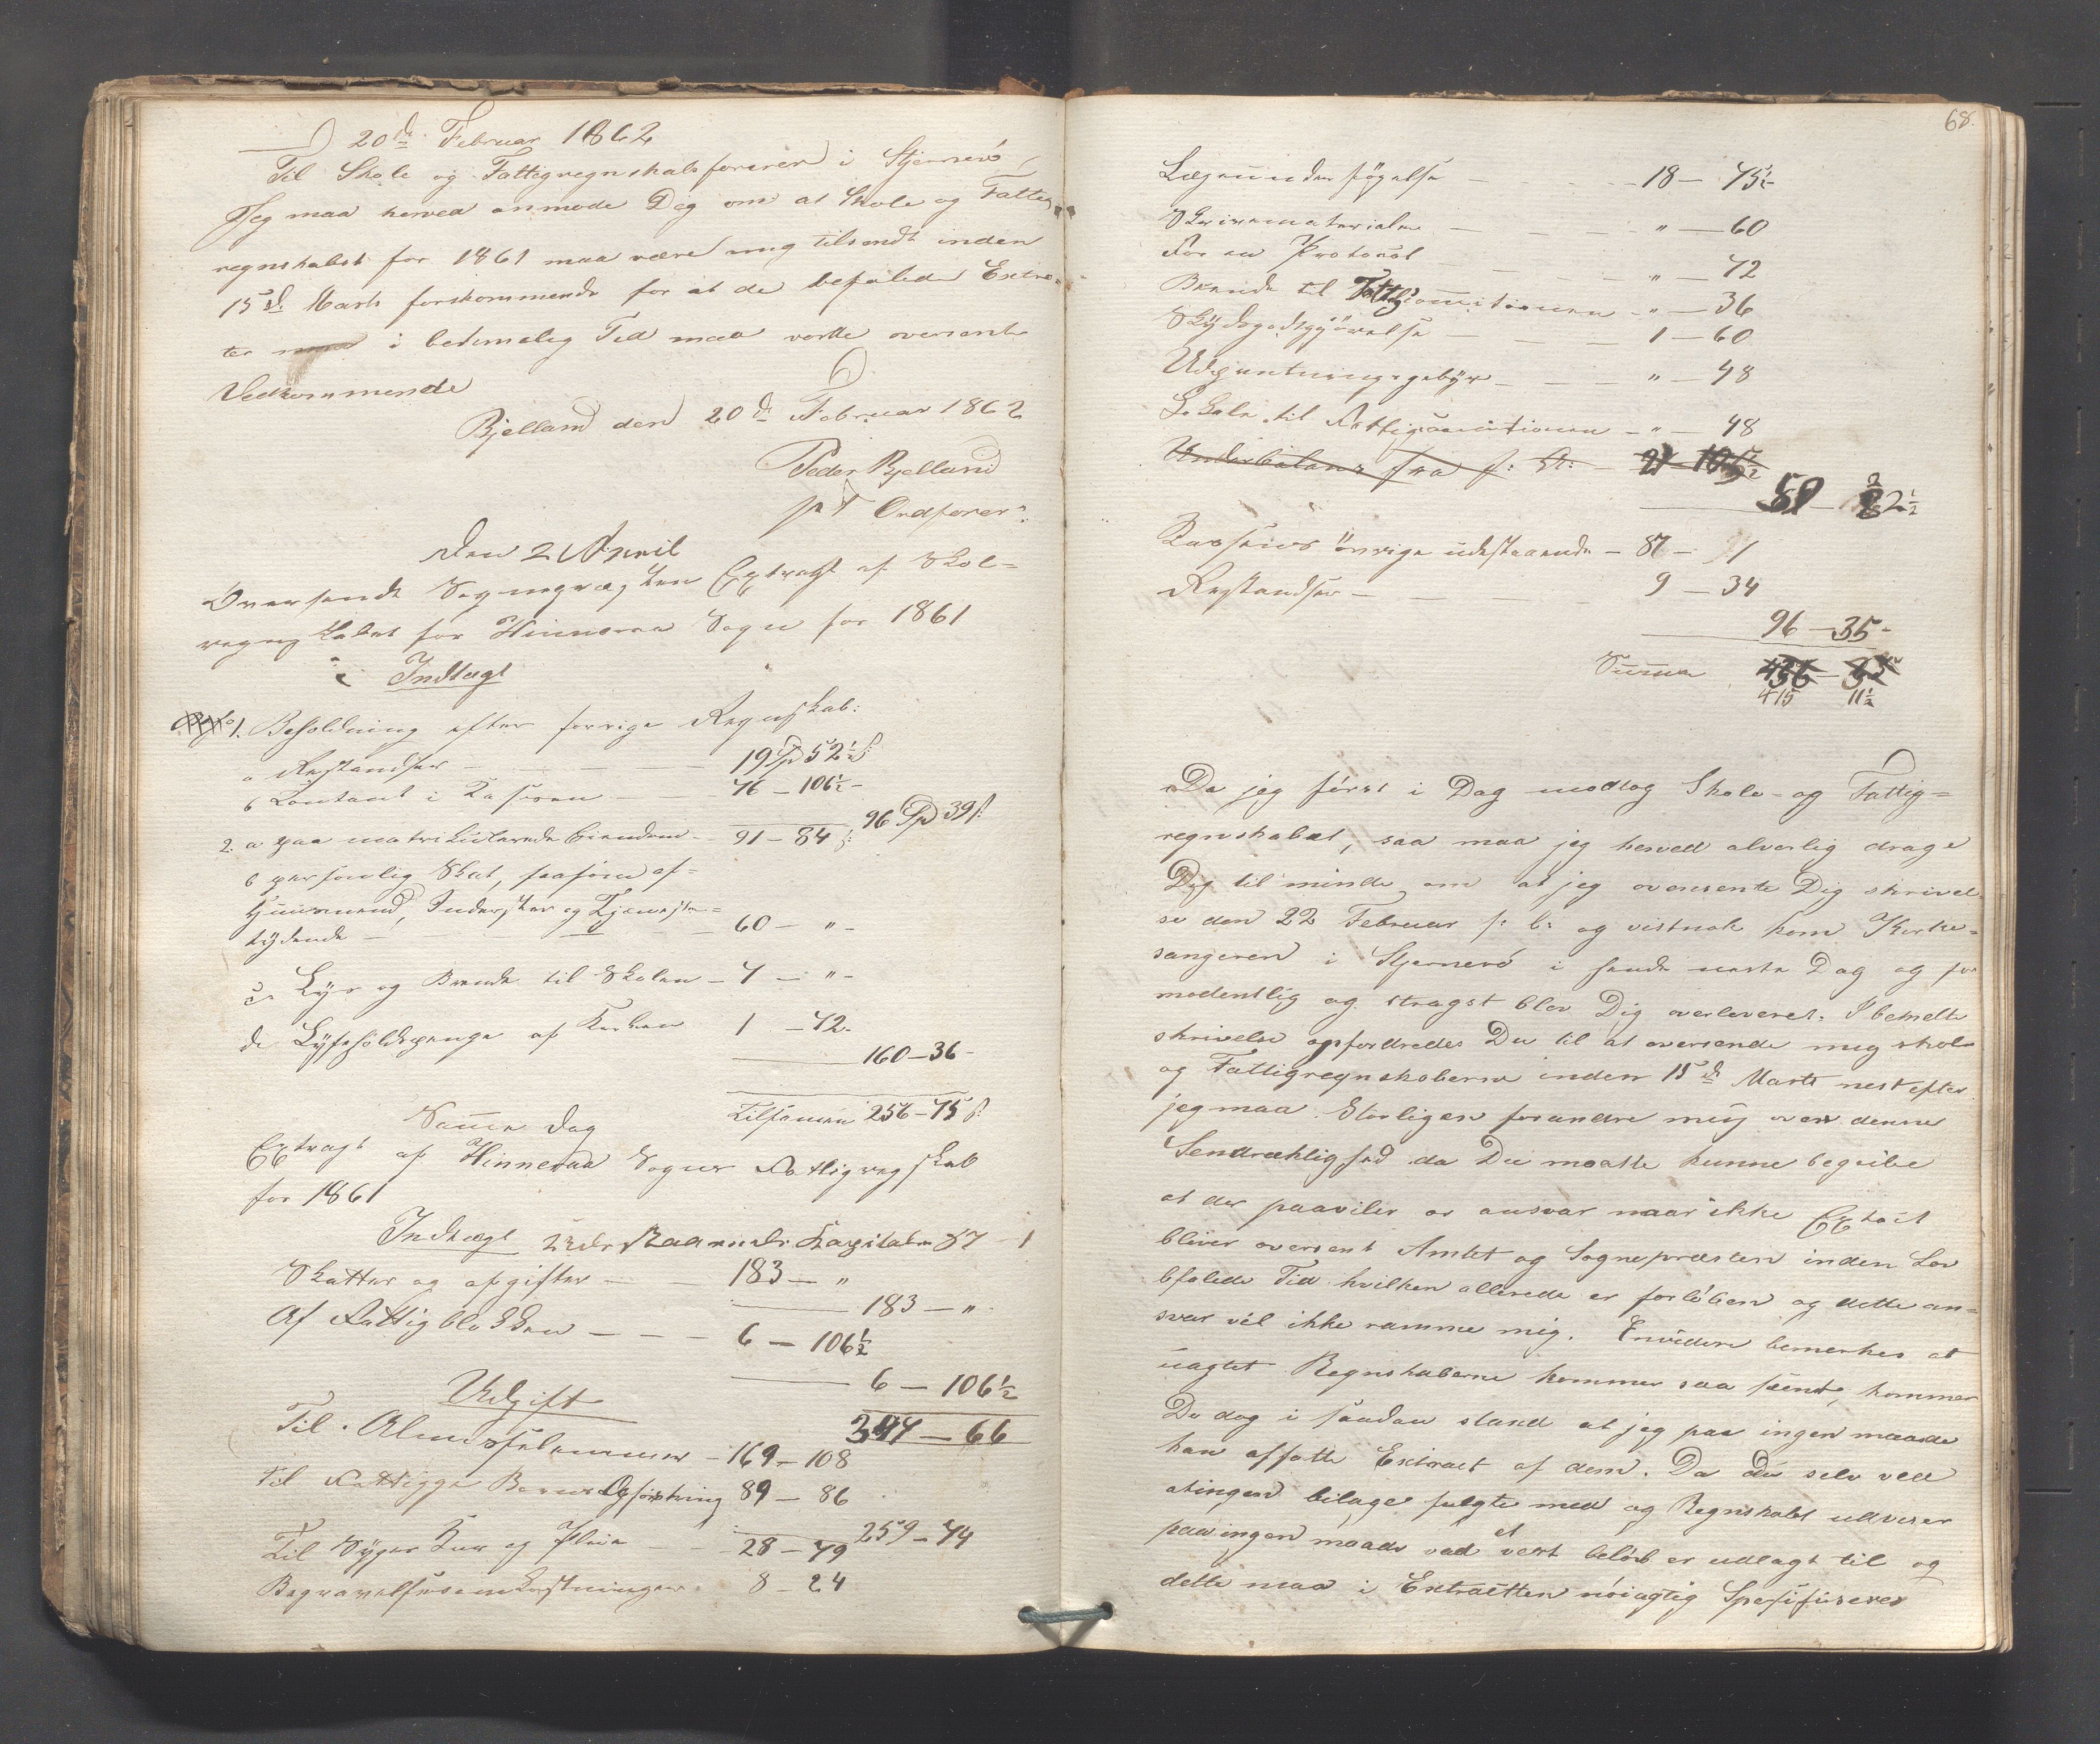 20de Februar 1862
Til Skole og Fattigregnskabsforeren i Stjernerö
Jeg maa herved anmode Dig om at Skole og Fattig-
regnskabet for 1861 maa være mig tilsendt inden
15de Marts forskommende for at de befalede Extra-
ter i betimelig Tid maa vorde oversente
Vedkommende
Bjelland den 20de Februar 1862
Peder Bjelland
p t Ordforer
Den 2 April
Oversendt Sognepræsten Extragt af Skol-
regnskabet for Hinneraa Sogn for 1861
Indtægt
1. Beholdning efter forrige Regnskab:
a Restandser — 19 Spd 52½ s:
b Contant i Kassen — 76 – 106½ –
96 Spd 39 s:
2. a paa matrikulerede Eiendom – 91 – 84 s:
b personlig Skat, saasom af
Huusmænd, Inderster og Tjeneste-
tydende — 60 – " –
c Lys og Brende til Skolen – 7 – " –
d Lysholdspenge af Kirken 1 – 72 –
160 – 36 –
Tilsamen 256 – 75 s:
Samme Dag
Extragt af Hinneraa Sogns Fattigregskab
for 1861
Indtægt Udestaaende Kapitaler 87 – 1
Skatter og afgifter — 183 – "
183 – "
Af Fattigblokken — 6 – 106½
6 – 106½
Udgift
347 – 66
Til Almisselemmer – 169 – 108
Til Fattigge Børns Opfostring 89 – 86
259 – 74
Til Syges Kur og Pleie — 28 – 79
Begravelsesomkostninger 8 – 24
68.
Lægeundersøgelse — 18 – 75½
Skrivematerialer — " – 60
For en Protocol — " – 72
Brende til Fattigcommisionen – " – 36
Skydsgodtgjørelse — 1 – 60
Udpantningsgebyr — " – 48
Lokale til Fattigcommitionen – " – 48
Underbalans fra f: A: – 21 – 10
22½
Kassens övrige udestaaende – 87 – 1
Restandser — 9 – 34
96 – 35 –
Summa
415 11½
Da jeg först i Dag modtog Skole- og Fattig-
regnskabet, saa maa jeg herved alverlig drage
Dig til minde om at jeg oversente Dig skrivel
se den 22 Februar og vistnok kom Kirke-
sangeren i Stjernerö i hende neste Dag og for
modentlig og stragst blev Dig overleveret. I bemelte
skrivelse opfordredes Du til at oversende mig skole
og Fattigregnskaberne inden 15de Marts nest efter
jeg maa Storligen forundre mig over denne
Sendræktighed da Du maatte kunne begribe
at der paaviler os ansvar naar ikke
bliver oversent Amtet og Sognepræsten inden Lov
befalede Tid hvilken allerede er forlöben og dette an-
svar vil ikke ramme mig. Envidere bemerkes at
uagtet Regnskaberne kommer saa seent, kommer
De dog i saadan stand at jeg paa ingen maade
kan affatte Extract af dem. Da du selv ved
at ingen bilage fulgte med og Regnskabet udviser
paa ingen maade vad et vert belöb er udlagt til og
dette maa i Extractten nöiagtig Spesifiseres